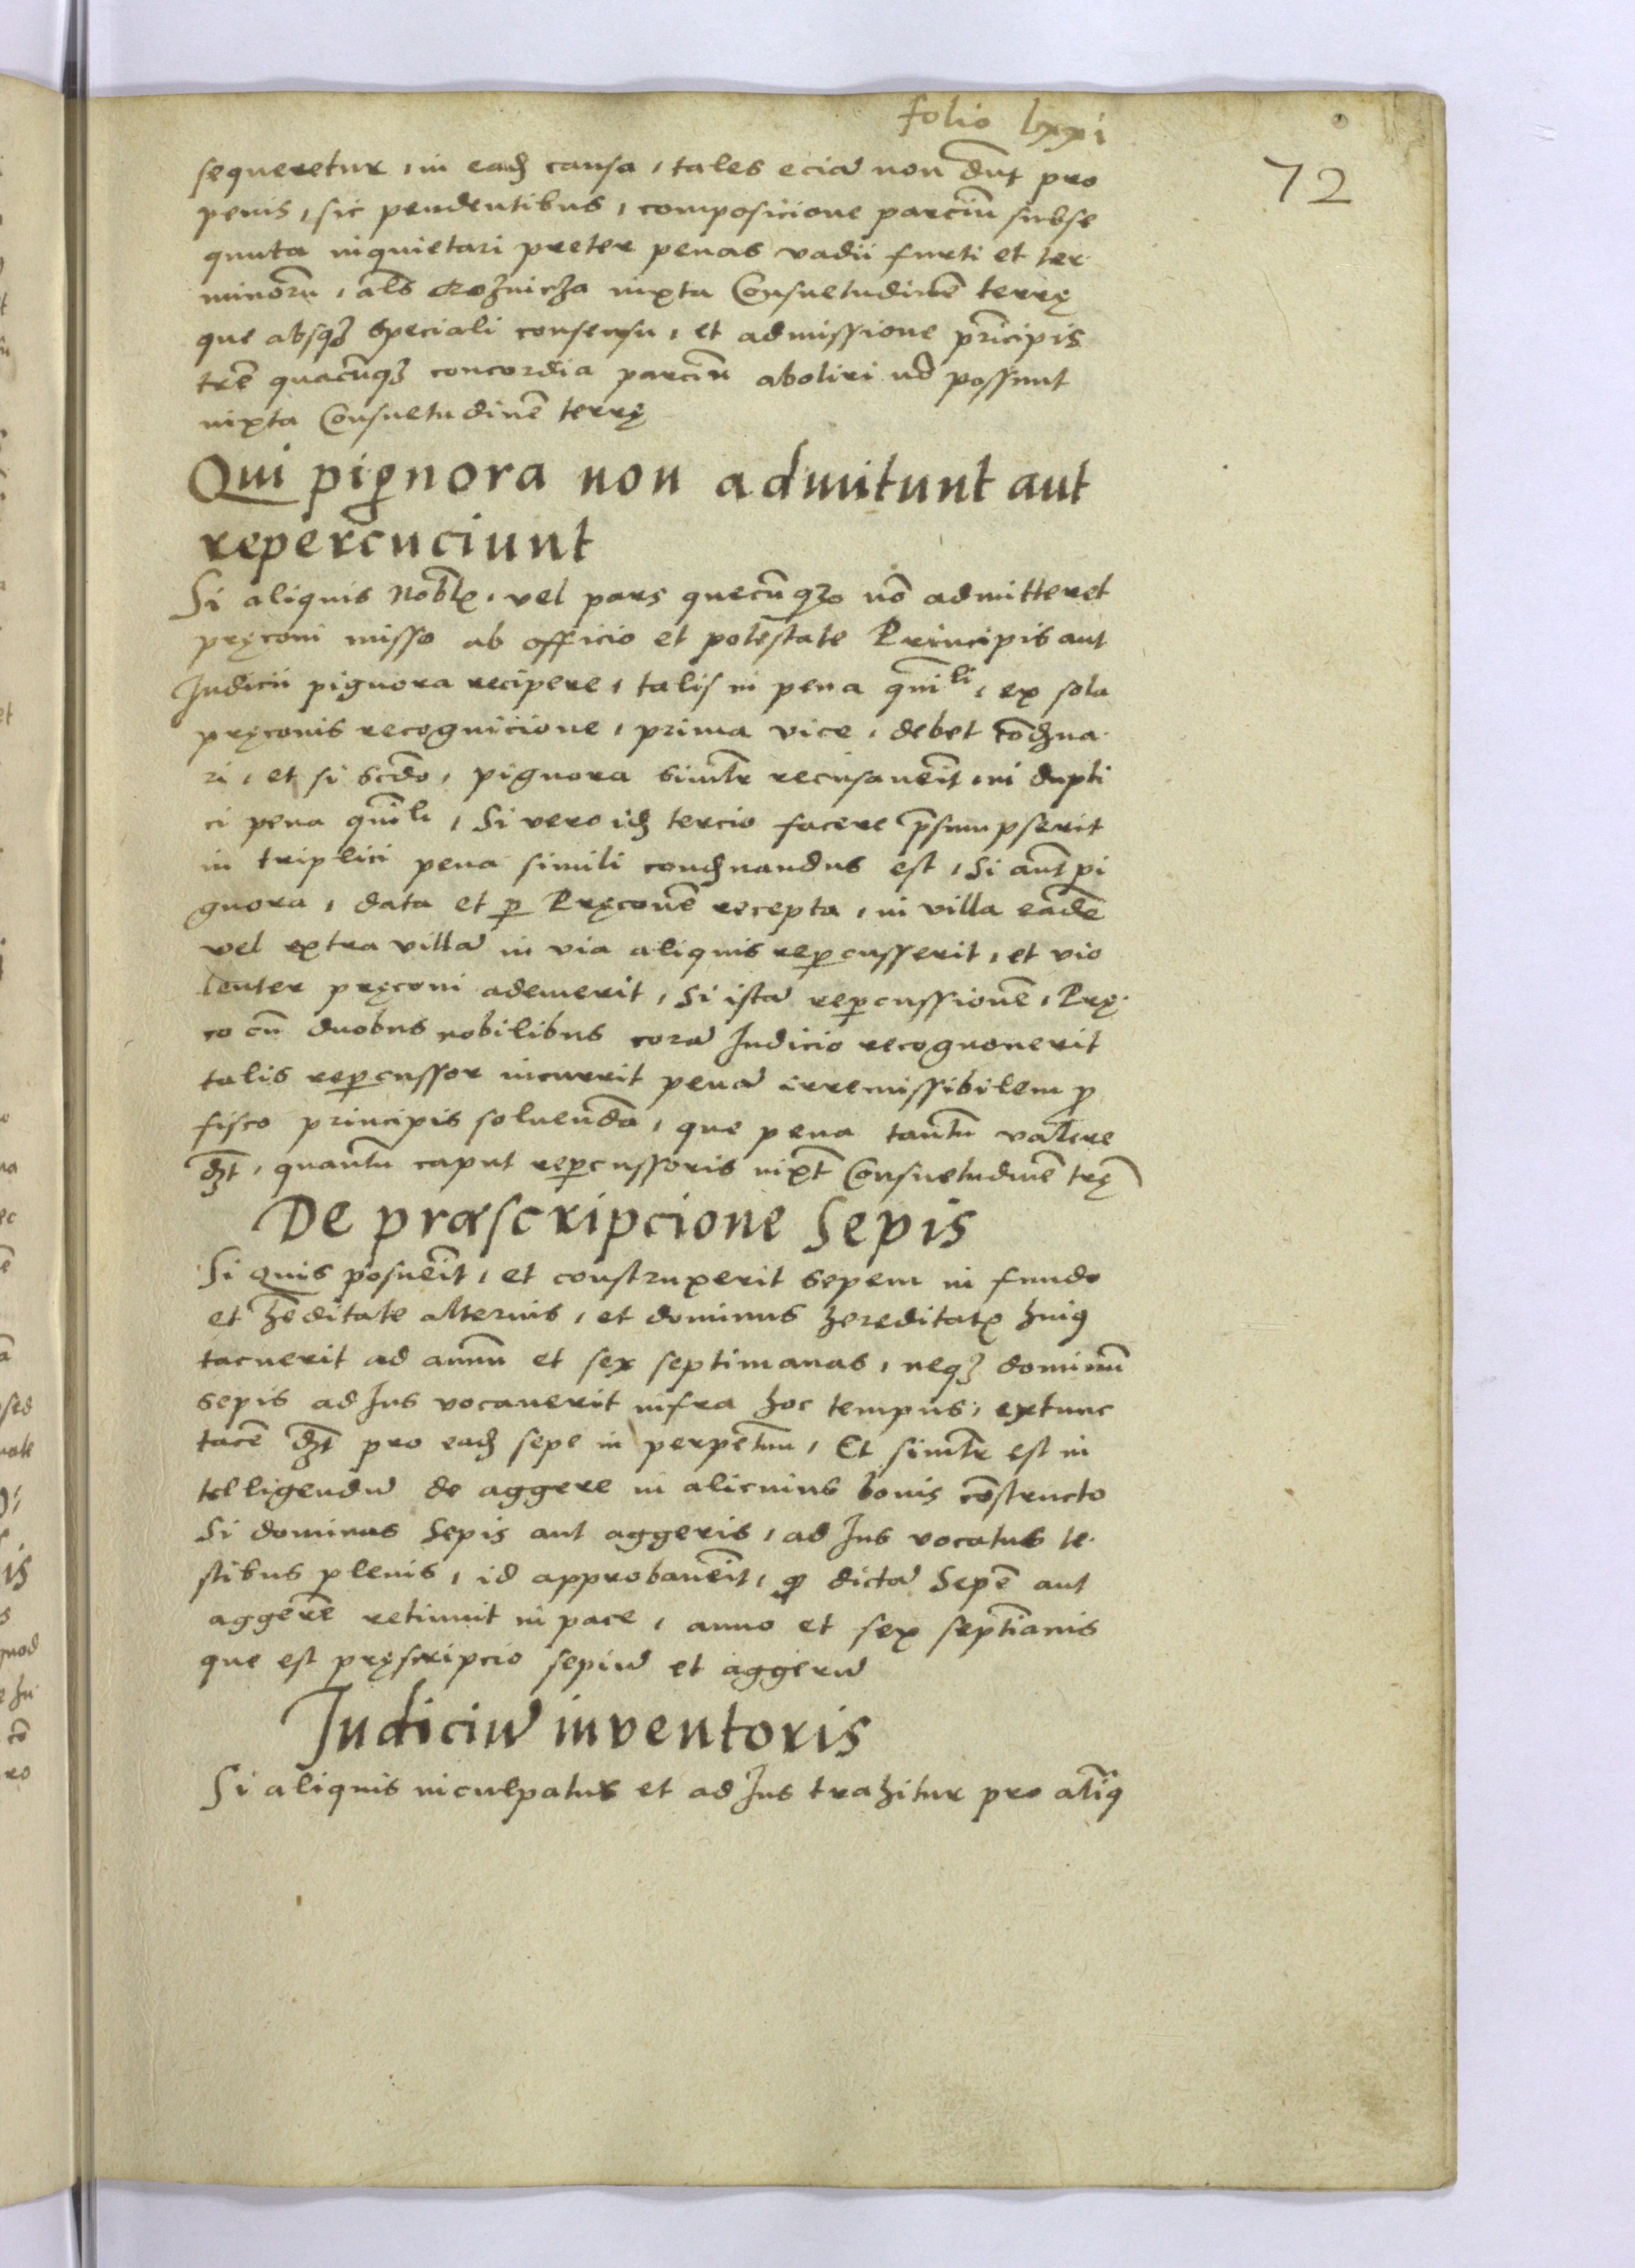 folio lxxi
72
sequeretur, in eadē causa, tales eciā non dn̄t pro
penis, sic pendentibus, composicione parciū subse
quuta inquietari preter penas vadii furti et ter
minorū, al̄s iuxta Consuetudinē terrę
que absq₃ speciali consensu, et admissione pri̅cipis
trē quacūq₃ concordia parciū aboliri nō possunt
iuxta Consuetudinē terrę
Qui pignora non admitunt aut
repercuciunt
Si aliquis Nobl̄, vel pars quecūq₃ nō admitteret
pręconi misso ab officio et potestate Principis aut
Judicii pignora recipere, talis in pena quī li, ex sola
pręconis recognicione, prima vice, debet cōdēna
ri, et si scd̄o, pignora siml̄r recusauēit, in dupli
ci pena quī li, Si vero idē tercio facere p̄sumpserit
in triplici pena simili condēnandus est, Si aūt pi
gnora, data et ꝑ Pręconē recepta, in villa eadē
vel extra villā in via aliquis reꝑcusserit, et vio
lenter pręconi ademerit, Si istā reꝑcussionē, Prę
co cū duobus nobilibus corā Judicio recognouerit
talis reꝑcussor incurrit penā irremissibilem ꝓ
fisco principis soluendā, que pena tantū valere
dēt, quantū caput reꝑcussoris iuxt̄ Consuetudinē trę̄
De præscripcione Sepis
Si Quis posuēit, et construxerit sepem in fundo
et hēditate alterius, et dominus hereditatꝭ huiꝰ
tacuerit ad annū et sex septimanas, neq₃ dominū
sepis ad Jus vocauerit infra hoc tempus, extunc
tacē dēt pro eadē sepe in perpetuū, Et siml̄r est in
telligendū de aggere in alicuius bonis cōstructo
Si dominus Sepis aut aggeris, ad Jus vocatus te
stibus plenis, id approbauēit, ꝙ dictā Sepē aut
aggerē retinuit in pace, anno et sex septīanis
que est pręscripcio sepiū et aggerū
Judiciū inventoris
Si aliquis inculpatur et ad Jus trahitur pro aliqͥ